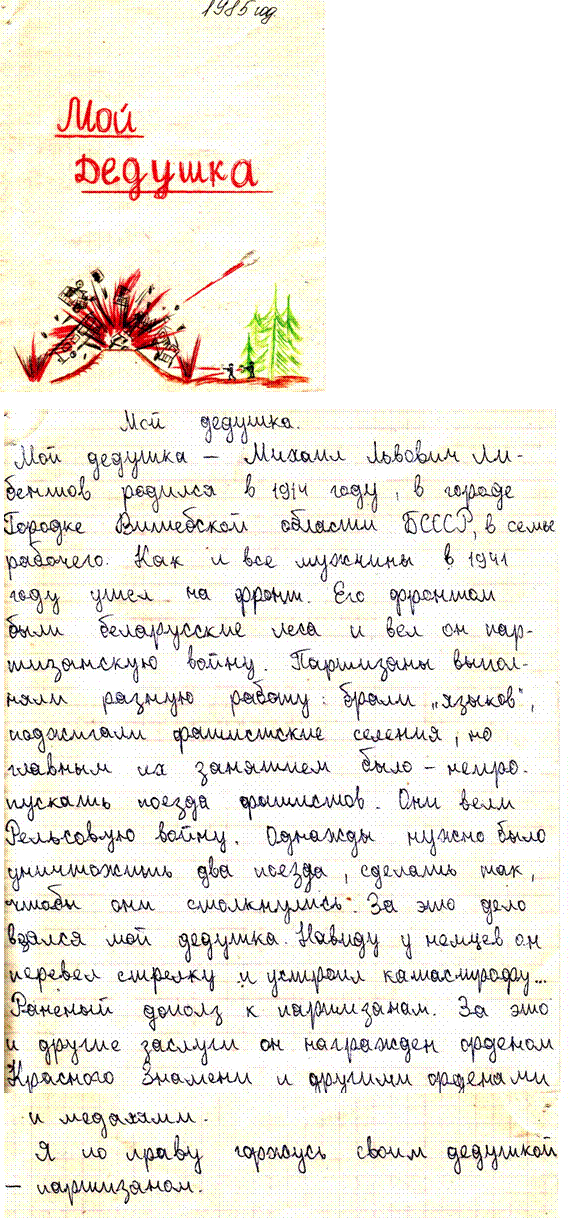 1985 год.
Мой
Дедушка
Мой дедушка.
Мой дедушка – Михаил Львович Ли-
бентов родился в 1914 году, в городе
Городке Витебской области БСССР, в семье
рабочего. Как и все мужчины в 1941
году ушел на фронт. Его фронтом
были беларусские леса и вел он пар-
тизанскую войну. Партизаны выпол-
няли разную работу: брали „языков",
поджигали фашистские селения, но
главным их занятием было – непро-
пускать поезда фашистов. Они вели
Рельсовую войну. Однажды нужно было
уничтожить два поезда, сделать так,
чтобы они столкнулись. За это дело
взялся мой дедушка. Навиду у немцев он
перевел стрелку и устроил катастрофу...
Раненый дополз к партизанам. За это
и другие заслуги он награжден орденом
Красного Знамени и другими орденами
и медалями.
Я по праву горжусь своим дедушкой
– партизаном.